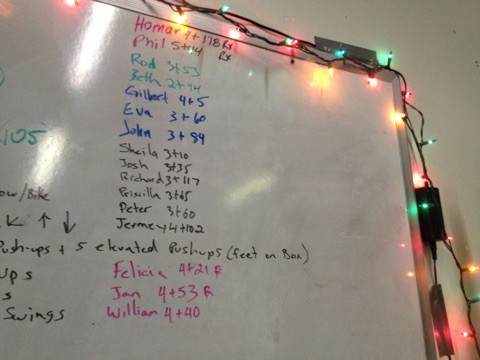 Homar 4+178 Rx
Phil 5+44 Rx
Rod 3+53
Beth 2+94
Gilbert 4+5
Eva 3+60
John 3+84
Sheila 3+10
Josh 3+35
Richard 3+117
Priscilla 3+65
Peter 3+60
Jermey 4+102
ow/Bike
↑ ↓
Push-ups + 5 elevated Pushups (feet on Box)
ups
s
Swings
Felicia 4+21 R
Jan 4+53 R
Willian 4+40